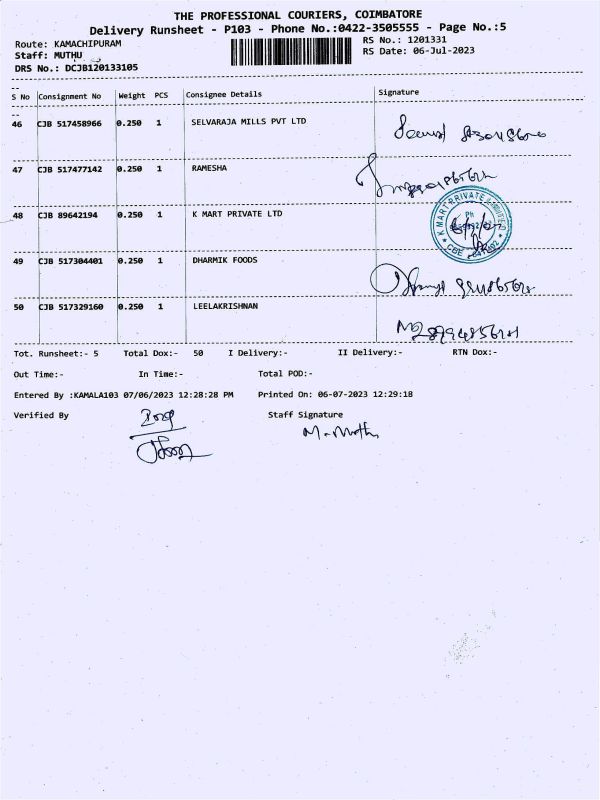 THE PROFESSIONAL COURIERS, COIMBATORE
Delivery Runsheet - P103 - Phone No.:0422-3505555 - Page No.:5
Route: KAMACHIPURAM RS No.: 1201331
Staff: MUTHU RS Date: 06-Jul-2023
DRS No.: DCJB120133105
S No Consignment No Weight PCS Consignee Details Signature
46 CJB 517458966 0.250 1 SELVARAJA MILLS PVT LTD
47 CJB 517477142 0.250 1 RAMESHA
48 CJB 89642194 0.250 1 K MART PRIVATE LTD
K MART PRIVATE LIMITED
49 CJB 517304401 0.250 1 DHARMIK FOODS
50 CJB 517329160 0.250 1 LEELAKRISHNAN
Tot. Runsheet:- 5 Total Dox:- 50 I Delivery:- II Delivery:- RTN Dox:-
Out Time:- In Time:- Total POD:-
Entered By :KAMALA103 07/06/2023 12:28:28 PM Printed On: 06-07-2023 12:29:18
Verified By Staff Signature
M. Muthu